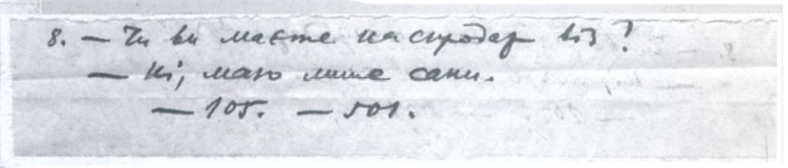 8. — Чи ви маєте на спродаж віз?
— Ні, маю лише сани.
— 105. — 501.